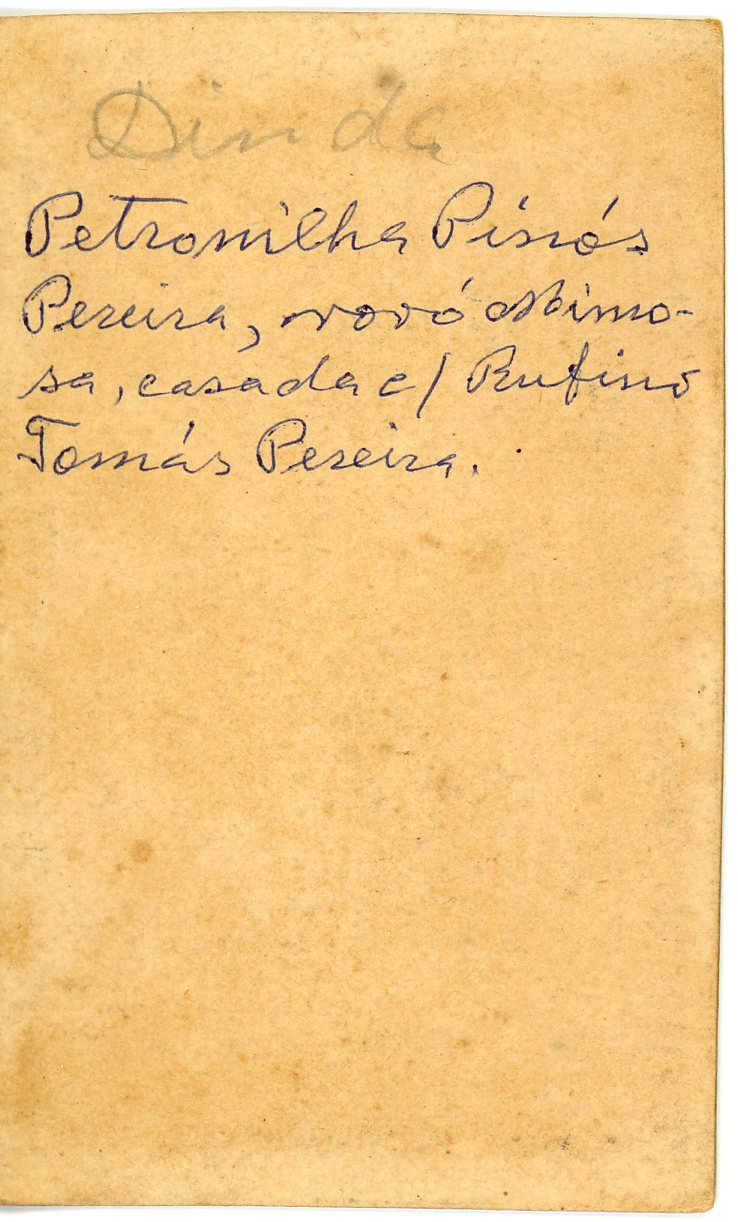 Dinda
Petronilha Pinós
Pereira, vovó Mimo-
sa, casada c/ Rufino
Tomás Pereira.